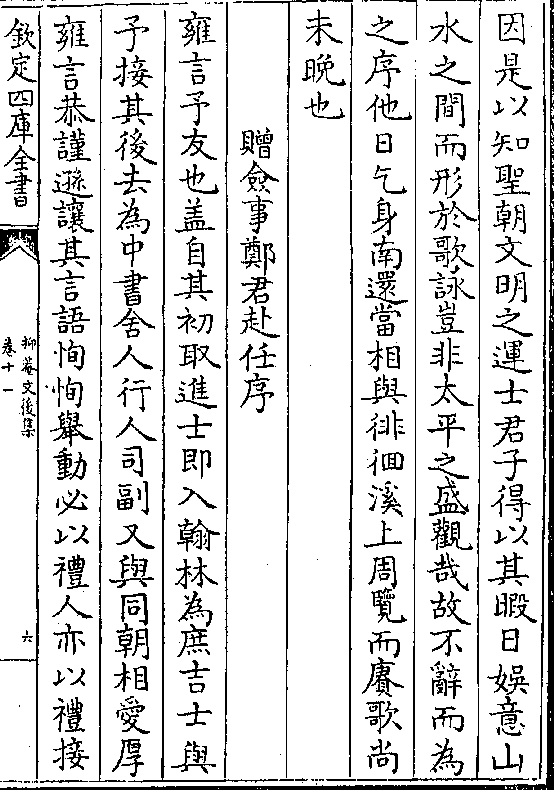 因是以知聖朝文明之運士君子得以其暇日娱意山
水之間而形於歌詠豈非太平之盛觀哉故不辭而為
之序他日乞身南還當相與徘徊溪上周覽而賡歌尚
未晚也
贈僉事鄭君赴任序
雍言予友也盖自其初取進士即入翰林為庶吉士與
予接其後去為中書舍人行人司副又與同朝相愛厚
雍言恭謹遜讓其言語恂恂舉動必以禮人亦以禮接
欽定四庫全書
抑菴文後集
卷十一
六